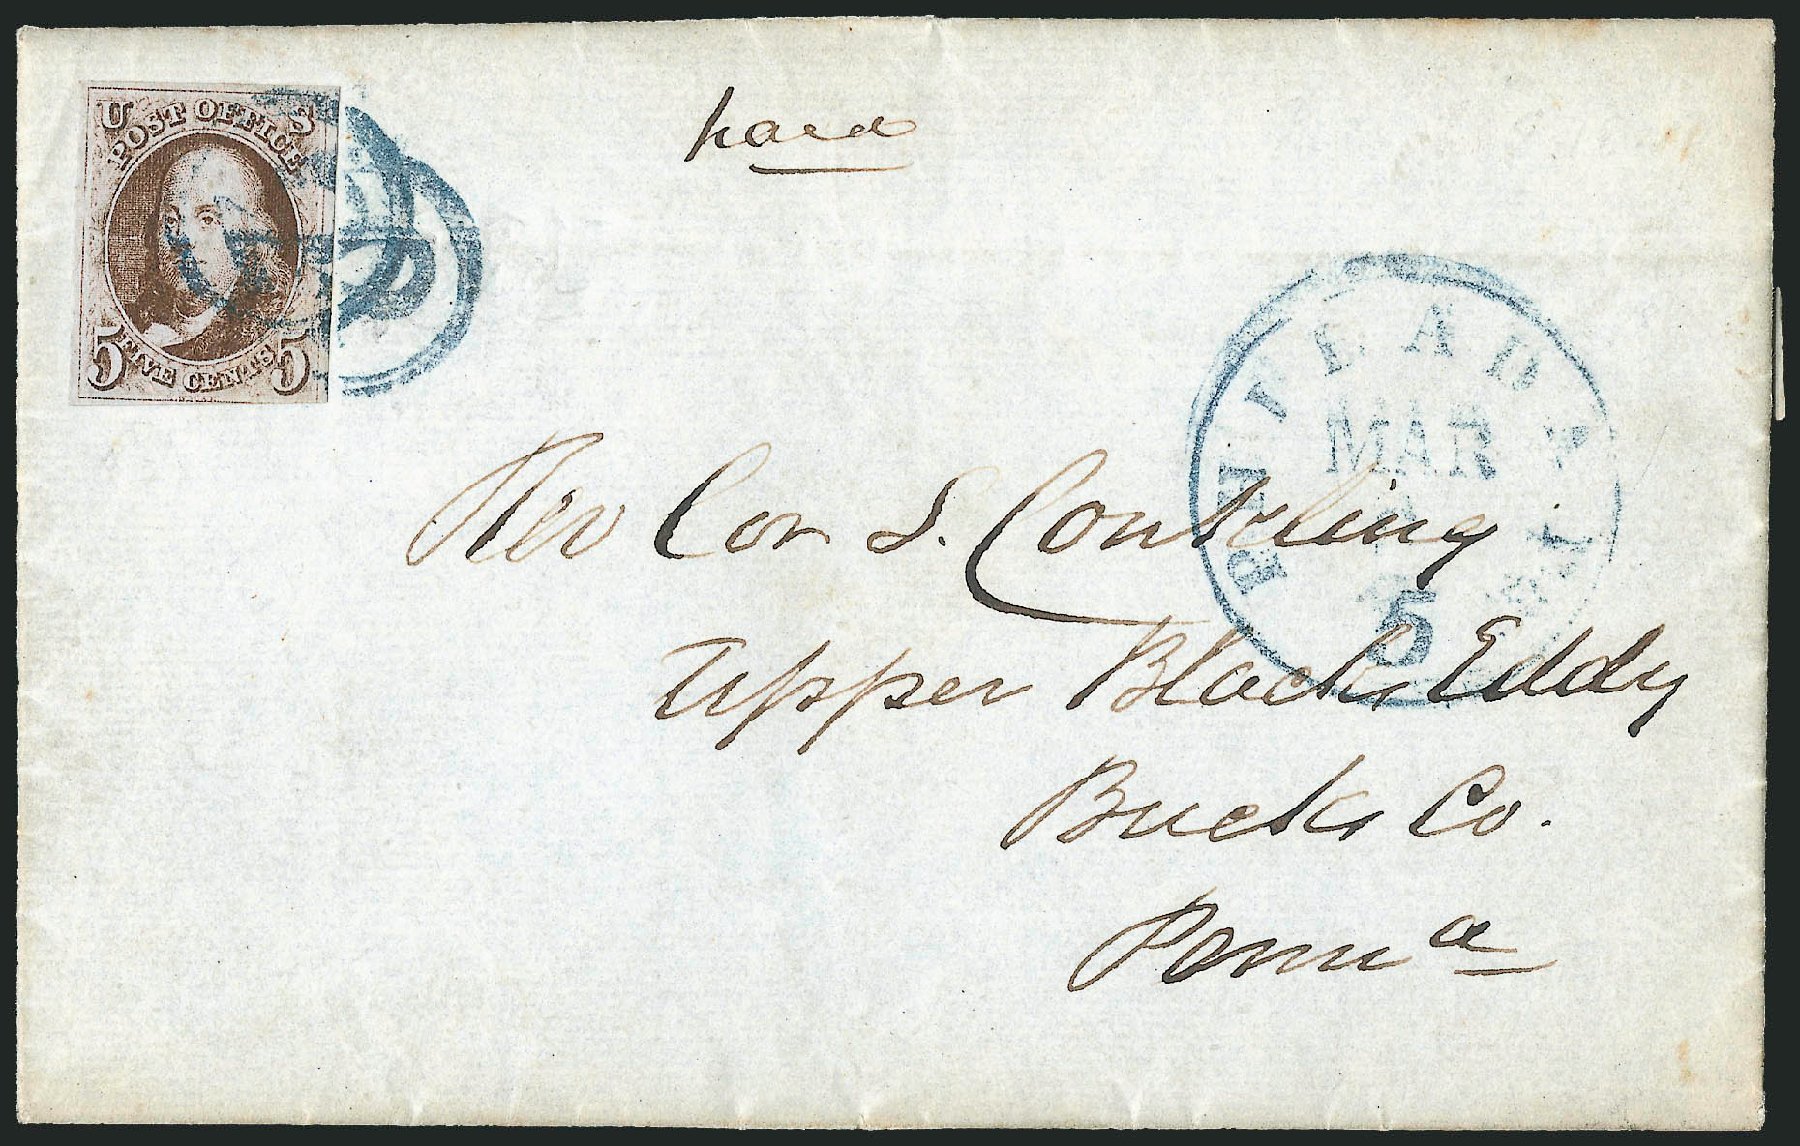 U S
POST OFFICE
5 5
FIVE CENTS
5
paid
PHILADA
MAR
5
Rev Cor S. Conkling
Upper Blacks Eddy
Bucks Co.
Penna